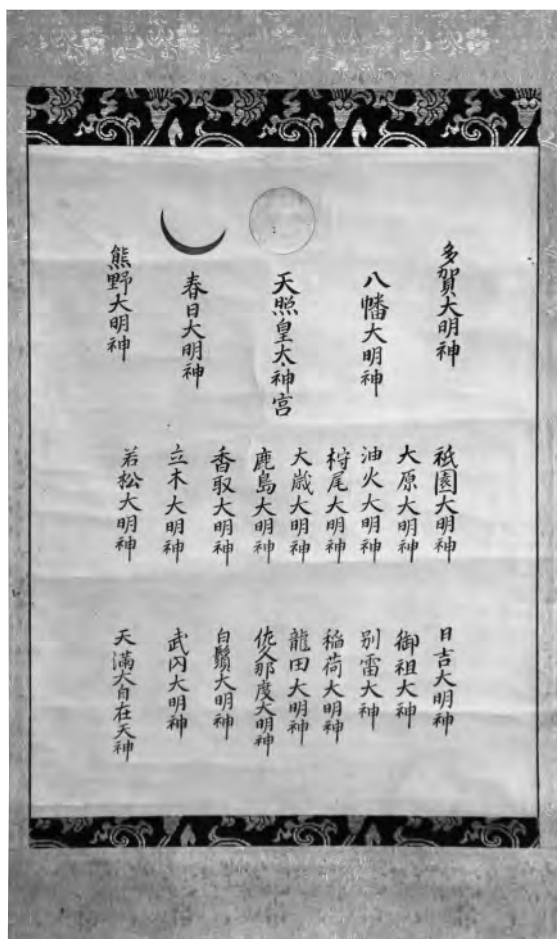 多賀大明神
八幡大明神
天照皇大神宮
春日大明神
熊野大明神
祇園大明神
大原大明神
油火大明神
尾大明神
大歳大明神
鹿島大明神
香取大明神
立木大明神
若松大明神
日吉大明神
御祖大神
別雷大神
稲荷大明神
龍田大明神
佐久那度大明神
白鬚大明神
武内大明神
天満大自在天神